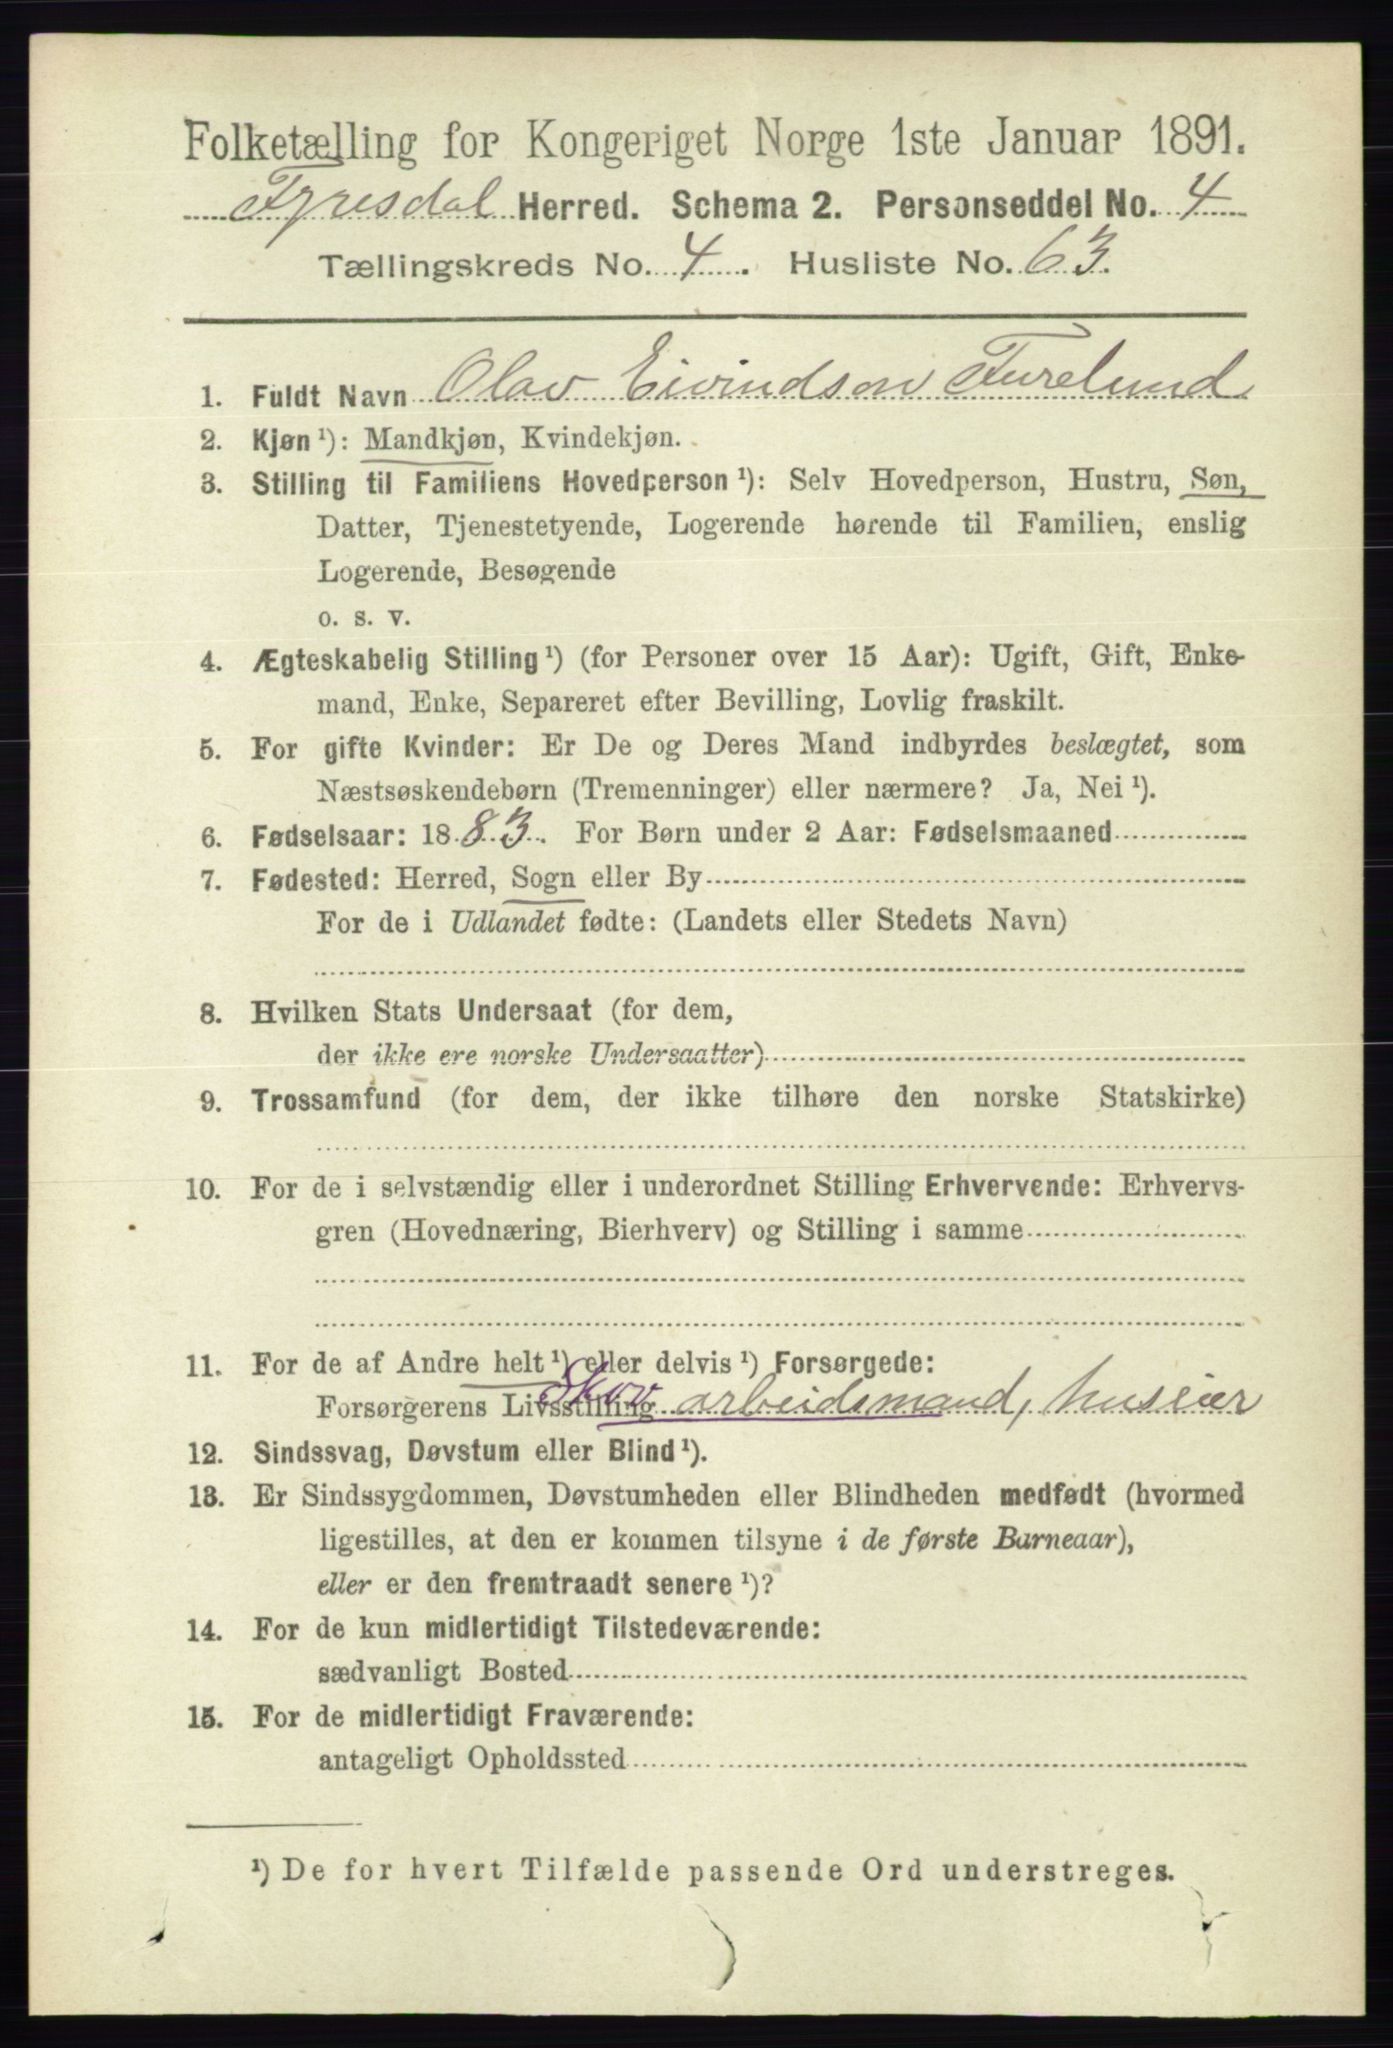 Folketælling for Kongeriget Norge 1ste Januar 1891.
Fyresdal Herred. Schema 2. Personseddel No. 4
Tællingskreds No. 4. Husliste No. 63.
1. Fuldt Navn Olav Eivindson Furelund
2. Kjøn ¹): Mandkjøn, Kvindekjøn.
3. Stilling til Familiens Hovedperson ¹): Selv Hovedperson, Hustru, Søn,
Datter, Tjenestetyende, Logerende hørende til Familien, enslig
Logerende, Besøgende
o. s. v.
4. Ægteskabelig Stilling ¹) (for Personer over 15 Aar): Ugift, Gift, Enke-
mand, Enke, Separeret efter Bevilling, Lovlig fraskilt.
5. For gifte Kvinder: Er De og Deres Mand indbyrdes beslægtet, som
Næstsøskendebørn (Tremenninger) eller nærmere? Ja, Nei ¹).
6. Fødselsaar: 1883. For Børn under 2 Aar: Fødselsmaaned
7. Fødested: Herred, Sogn eller By
For de i Udlandet fødte: (Landets eller Stedets Navn)
8. Hvilken Stats Undersaat (for dem,
der ikke ere norske Undersaatter)
9. Trossamfund (for dem, der ikke tilhøre den norske Statskirke)
10. For de i selvstændig eller i underordnet Stilling Erhvervende: Erhvervs-
gren (Hovednæring, Bierhverv) og Stilling i samme
11. For de af Andre helt ¹) eller delvis ¹) Forsørgede:
Forsørgerens Livsstilling Skov arbeidsmand, huseier
12. Sindssvag, Døvstum eller Blind ¹).
13. Er Sindssygdommen, Døvstumheden eller Blindheden medfødt (hvormed
ligestilles, at den er kommen tilsyne i de første Barneaar),
eller er den fremtraadt senere ¹)?
14. For de kun midlertidigt Tilstedeværende:
sædvanligt Bosted
15. For de midlertidigt Fraværende:
antageligt Opholdssted
¹) De for hvert Tilfælde passende Ord understreges.